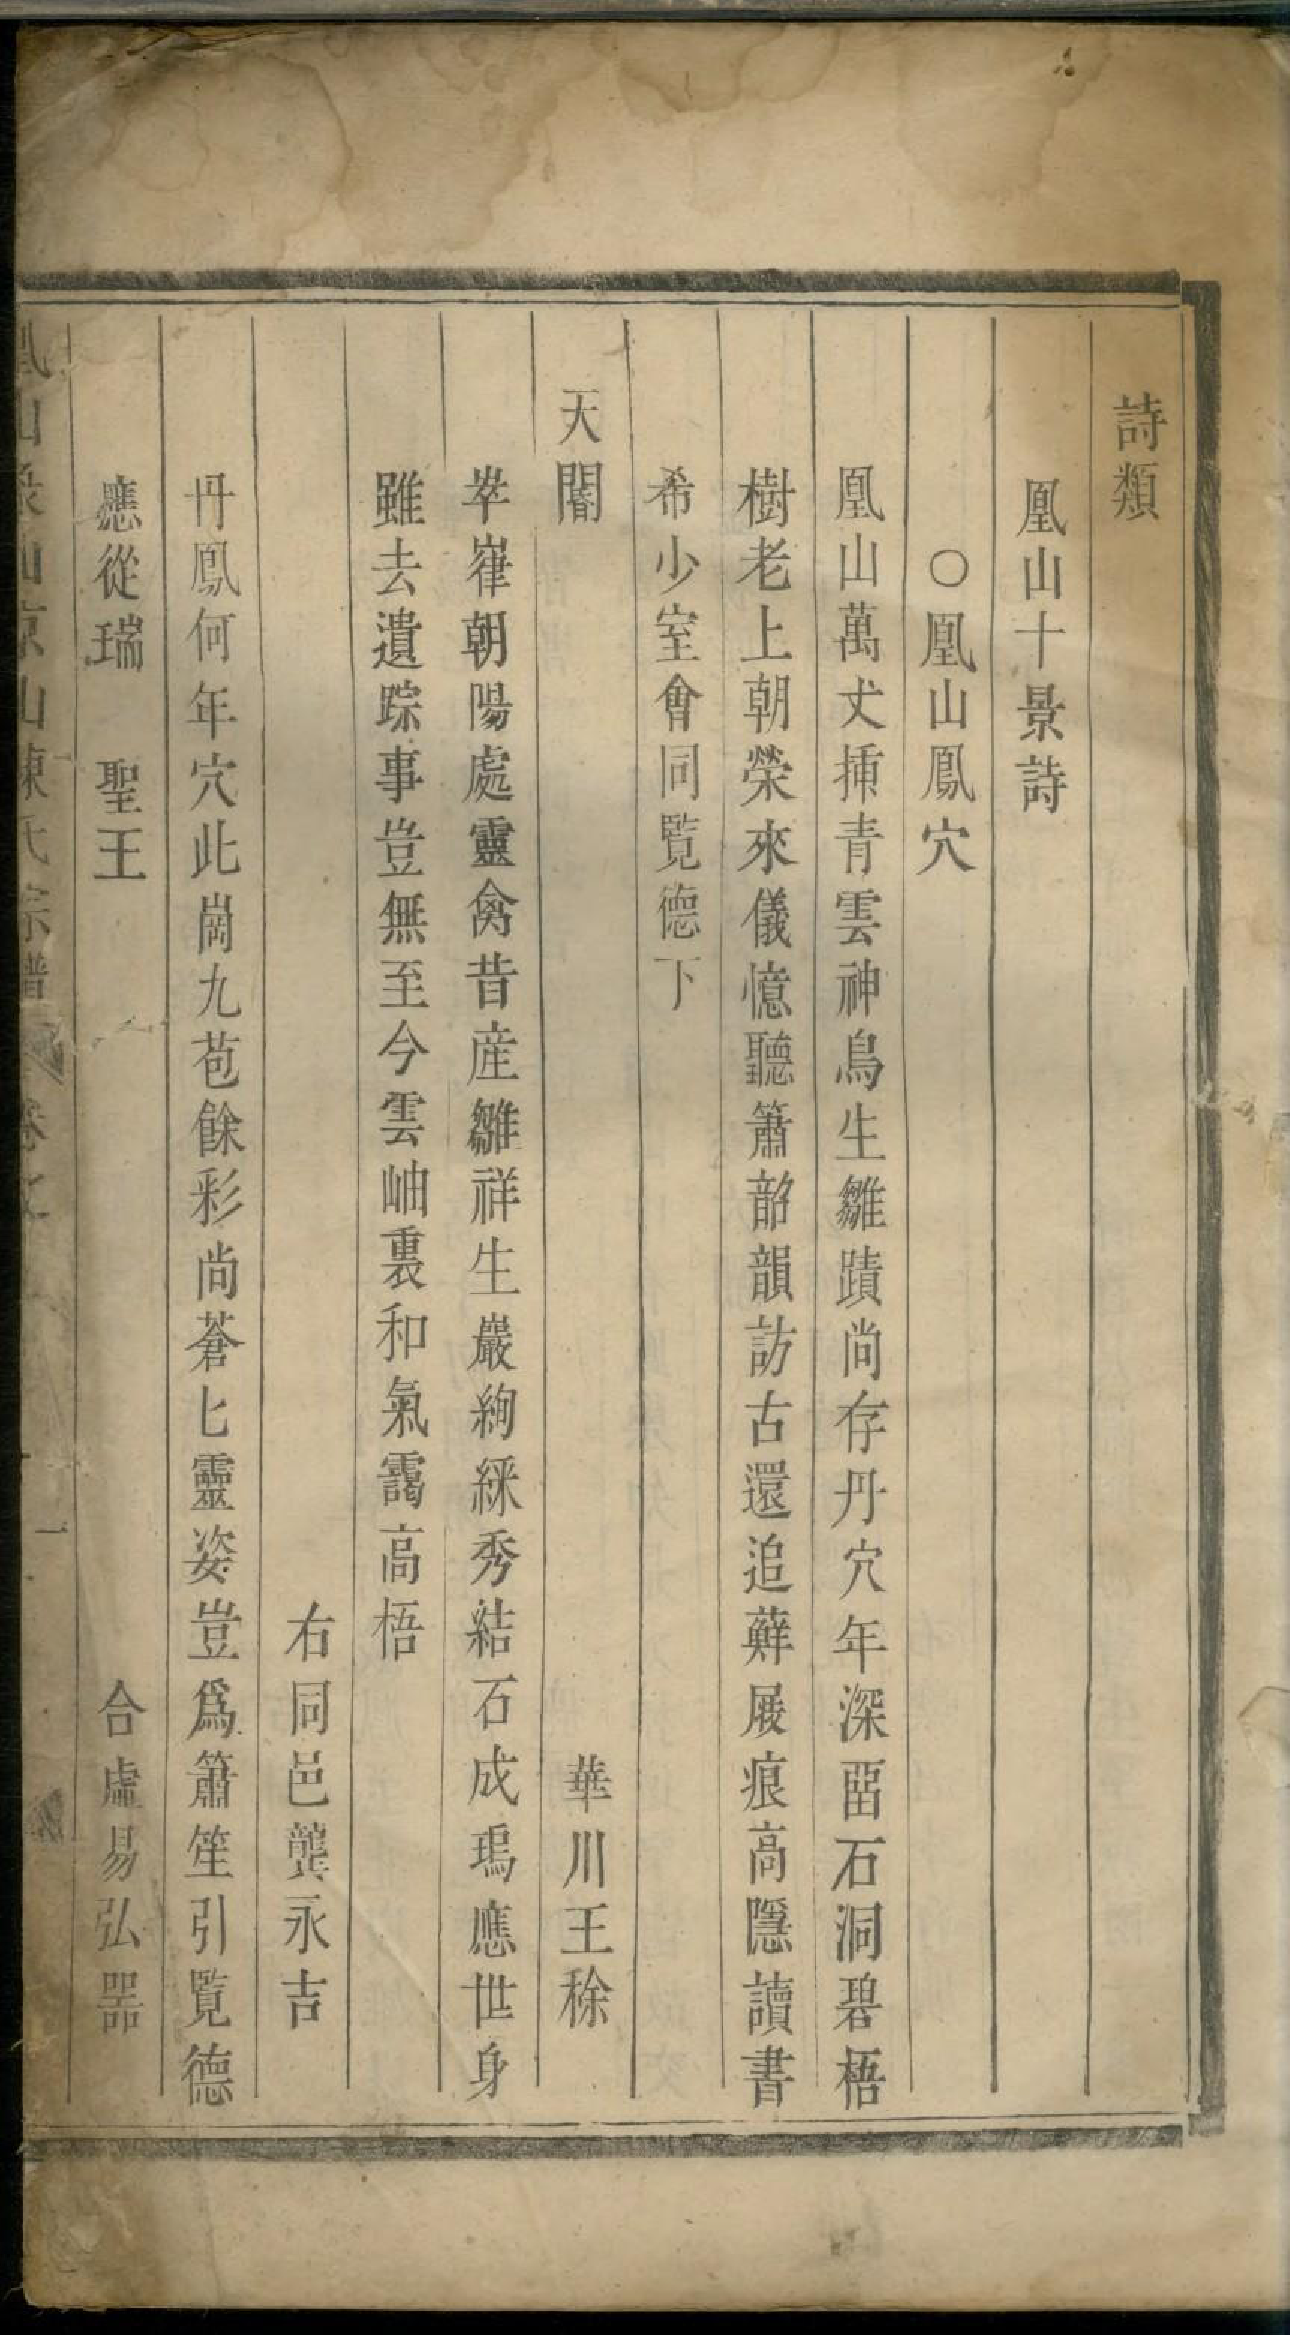 詩類
凰山十景詩
○凰山鳳穴
凰山萬丈揷青雲神鳥生雛蹟尚存丹穴年深畱石洞碧梧
樹老上朝榮來儀憶聽簫韶韻訪古還追蘚屐痕高隱讀書
希少室會同覧德下
天閽　華川王稌
崒嵂朝陽處靈禽昔産雛祥生巖絢綵秀結石成瑦應世身
雖去遺踪事豈無至今雲岫裏和氣靄高梧
右同邑龔永吉
丹鳳何年穴此崗九苞餘彩尚蒼匕靈姿豈爲簫笙引覧德
應從瑞　聖王　合虛易弘器
山陳氏宗譜　卷之　一